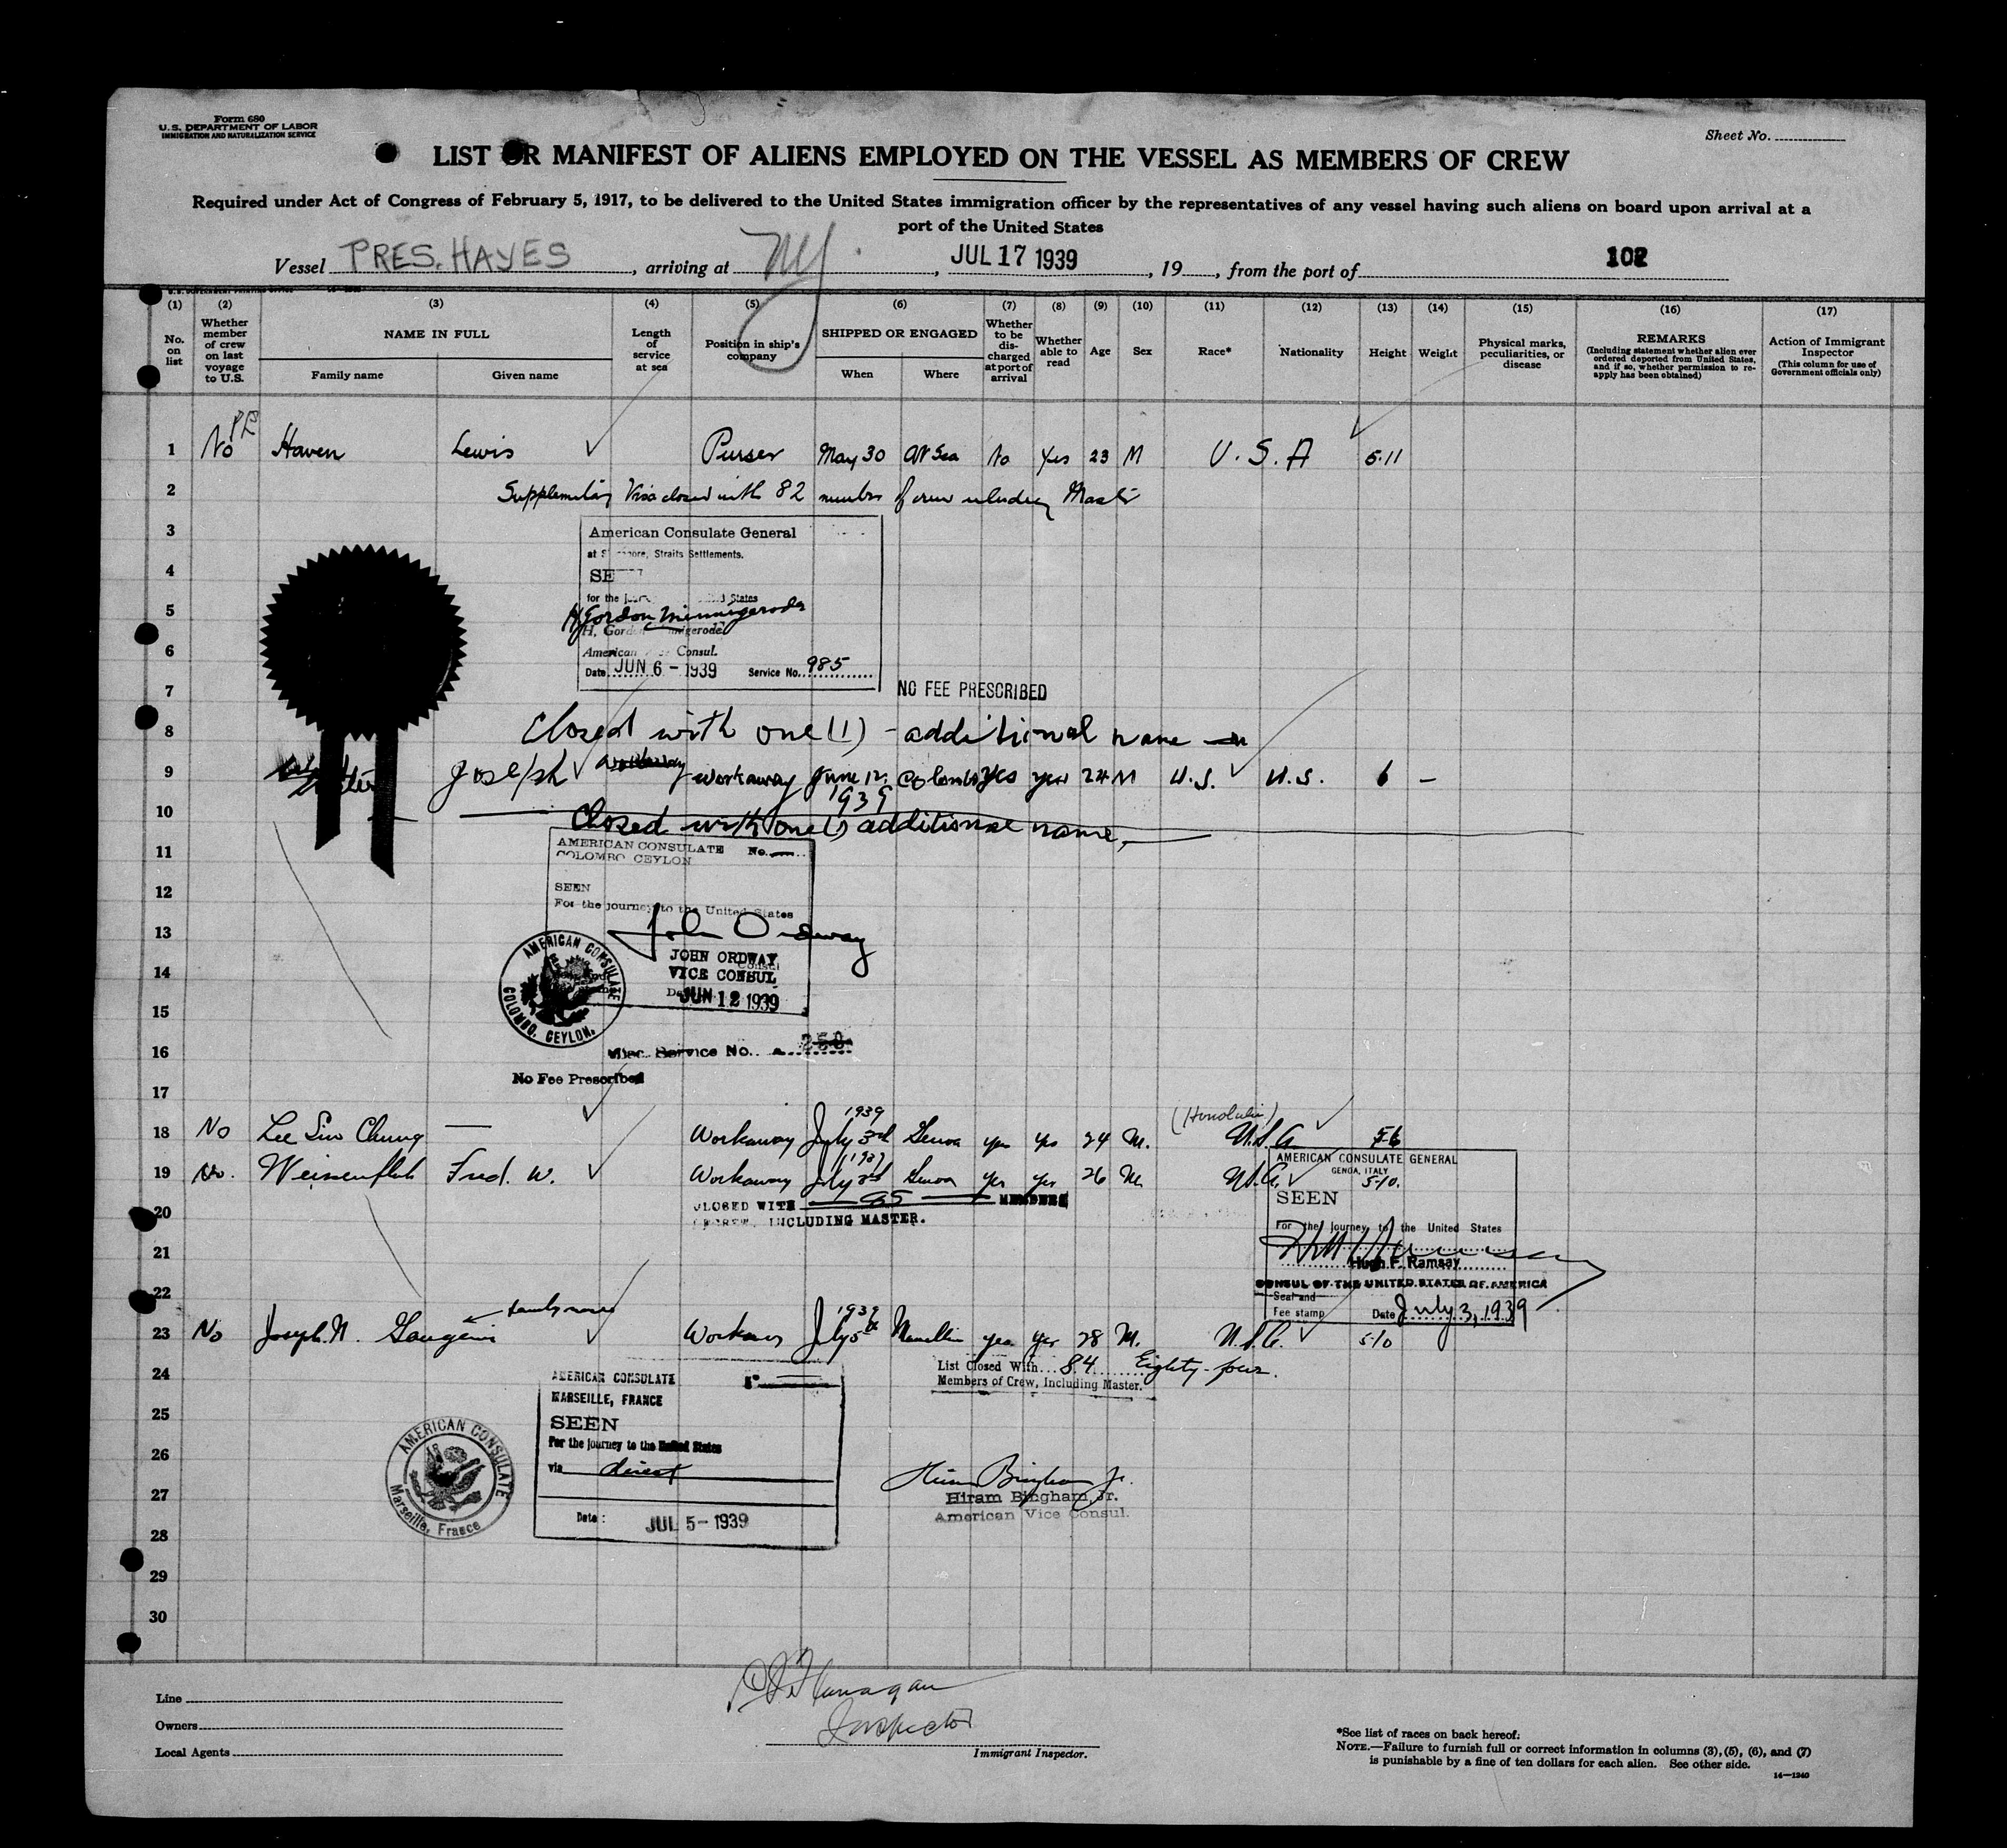 Form 680
U.S. DEPARTMENT OF LABOR
IMMIGRATION AND NATURALIZATION SERVICE
Sheet No.
LIST OR MANIFEST OF ALIENS EMPLOYED ON THE VESSEL AS MEMBERS OF CREW
Required under Act of Congress of February 5, 1917, to be delivered to the United States immigration officer by the representatives of any vessel having such aliens on board upon arrival at a
port of the United States
Vessel PRES. HAYES, arriving at NY, JUL 17 1939, 19, from the port of 102
(1) (2) (3) (4) (5) (6) (7) (8) (9) (10) (11) (12) (13) (14) (15) (16) (17)
No. on list
Whether member of crew on last voyage to U.S.
NAME IN FULL
Family name
Given name
Length of service at sea
Position in ship's company
SHIPPED OR ENGAGED
When
Where
Whether to be discharged at port of arrival
Whether able to read
Age
Sex
Race*
Nationality
Height
Weight
Physical marks, peculiarities, or disease
REMARKS
(Including statement whether alien ever ordered deported from United States, and if so, whether permission to reapply has been obtained)
Action of Immigrant Inspector
(This column for use of Government officials only)
1 No Haven Lewis Purser May 30 At Sea No Yes 23 M U.S.A 5.11
2 Visa closed with 82 members of crew including Master
3 American Consulate General
at Straits Settlements.
4
for the States
5 H Gordon Minnigerode
H.
6 American Consul.
Date JUN 6 - 1939 Service No. 985
7 NO FEE PRESCRIBED
8 Closed with one (1) - additional name
9 Joseph workaway June 12, 1939 Colombo yes yes 24 M U.S. U.S. 6 -
10 Closed with one (1) additional name.
11 AMERICAN CONSULATE No.
COLOMBO CEYLON
12 SEEN
For the journey to the United States
13 John Ordway
JOHN ORDWAY
14 VICE CONSUL
JUN 12 1939
AMERICAN CONSULATE
COLOMBO, CEYLON.
15
16 Misc. Service No. 258
No Fee Prescribed
17
18 No Lee Sin Chung — Workaway July 3rd 1939 Genoa yes yes 24 M. (Honolulu) U.S.A. 5-6
19 No. Fred. W. Workaway July 3rd 1939 Genoa yes yes 26 M. U.S.A. 5-10.
AMERICAN CONSULATE GENERAL
GENOA, ITALY
SEEN
20 CLOSED WITH 85 MEMBERS
CREW, INCLUDING MASTER.
For the journey to the United States
21 Hugh F. Ramsay
CONSUL OF THE UNITED STATES OF AMERICA
22 Seal and
Fee stamp Date July 3, 1939
family name
23 No Joseph. N. Workaway July 5th 1939 Marseilles yes yes 28 M. U.S.A. 5-10
24 List Closed With 84 Eighty-four.
Members of Crew, Including Master.
AMERICAN CONSULATE
25 MARSEILLE, FRANCE
SEEN
26 For the journey to the United States
via direct
AMERICAN CONSULATE
Marseille, France
Hiram Bingham Jr.
27 Hiram Bingham, Jr.
American Vice Consul.
28 Date: JUL 5 - 1939
29
30
Line
Owners
Local Agents
Flanagan
Inspector
Immigrant Inspector.
*See list of races on back hereof.
NOTE.—Failure to furnish full or correct information in columns (3), (5), (6), and (7)
is punishable by a fine of ten dollars for each alien. See other side.
14—1240